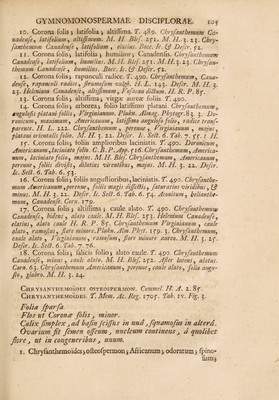 GYMNOMONOSPERMÆ DISCIFLORÆ. 105
10. Corona folis; latifolia; altissima. T. 489. Chrysanthemum Ca-
nadense, latifolium, altissimum. M. H. Bles. 251. M. H. 3. 23. Chry-
santhemum Canadense, latifolium, elatius. Bocc. Ic. & Descr. 52.
11. Corona solis; latifolia; humilior; Canadensis. Chrysanthemum
Canadense, latifolium, humilius. M. H. Bles. 251. M. H. 3. 23. Chrysan-
themum Canadense, humilius. Bocc. Ic. & Descr. 52.
12. Corona solis; rapunculi radice. T. 490. Chrysanthemum, Cana-
dense, rapunculi radice, strumosum vulgò. H. L. 143. Descr. M. H. 3.
23. Helenium Canadense, altissimum, Vosacan dictum. H. R. P. 85.
13. Corona solis; altissima, virgæ aureæ foliis. T. 490.
14. Corona solis; arborea; folio latissimo platani. Chrysanthemum,
angulosis platani foliis, Virginianum. Pluken. Almag. Phytogr. 83. 3. Do-
ricum, maximum, Americanum, latissimo anguloso folio, radice trans-
parente. H. L. 222. Chrysanthemum, perenne, Virginianum, majus,
platani orientalis folio. M. H. 3. 22. Descr. Ic. Sect. 6. Tab. 7. 55. 1. H.
15. Corona solis; foliis amplioribus laciniatis. T. 490. Doronicum,
Americanum, laciniato folio. C. B. P. App. 516. Chrysanthemum, America-
num, laciniato folio, majus. M. H. Bles. Chrysanthemum, Americanum,
perenne, foliis divisis, dilutius virentibus, majus. M. H. 3. 22. Descr.
Ic. Sect. 6. Tab. 6. 53.
16. Corona solis; foliis angustioribus, laciniatis. T. 490. Chrysanthe-
mum Americanum, perenne, foliis magis dissectis, saturatius viridibus, &
minus. M. H. 3. 22. Descr. Ic. Sect. 6. Tab. 6. 54. Aconitum, helianthe-
mum, Canadense. Corn. 179.
17. Corona solis; altissima; caule alato. T. 490. Chrysanthemum
Canadense, bidens, alato caule. M. H. Bles. 253. Helenium Canadense,
elatius, alato caule H. R. P. 85. Chrysanthemum Virginianum, caule
alato, ramosius, flore minore. Pluken. Alm. Phyt. 159. 3. Chrysanthemum,
caule alato, Virginianum, ramosum, flore minore aureo. M. H. 3. 25.
Descr. Ic. Sect. 6. Tab. 7. 76.
18. Corona solis; salicis folio; alato caule. T. 490. Chrysanthemum
Canadense, minus, caule alato. M. H. Bles. 252. Aster luteus, alatus.
Corn. 63. Chrysanthemum Americanum, perenne, caule alato, folio angu-
sto, glabro. M. H. 3. 24.
CHRYSANTHEMOÏDES OSTEOSPERMON. Commel. H. A. 2. 85.
CHRYSANTHEMOÏDES. T. Mem. Ac. Reg. 1705. Tab. IV. Fig. 3.
Folia sparsa.
Flos ut Corona solis, minor.
Calix simplex, ad basin scissus in unâ, squamosus in alterâ.
Ovarium fit semen osseum, nucleum continens, à quolibet
flore, ut in congeneribus, unum.
1. Chrysanthemoïdes; osteospermon; Africanum; odoratum; spino-
sum;